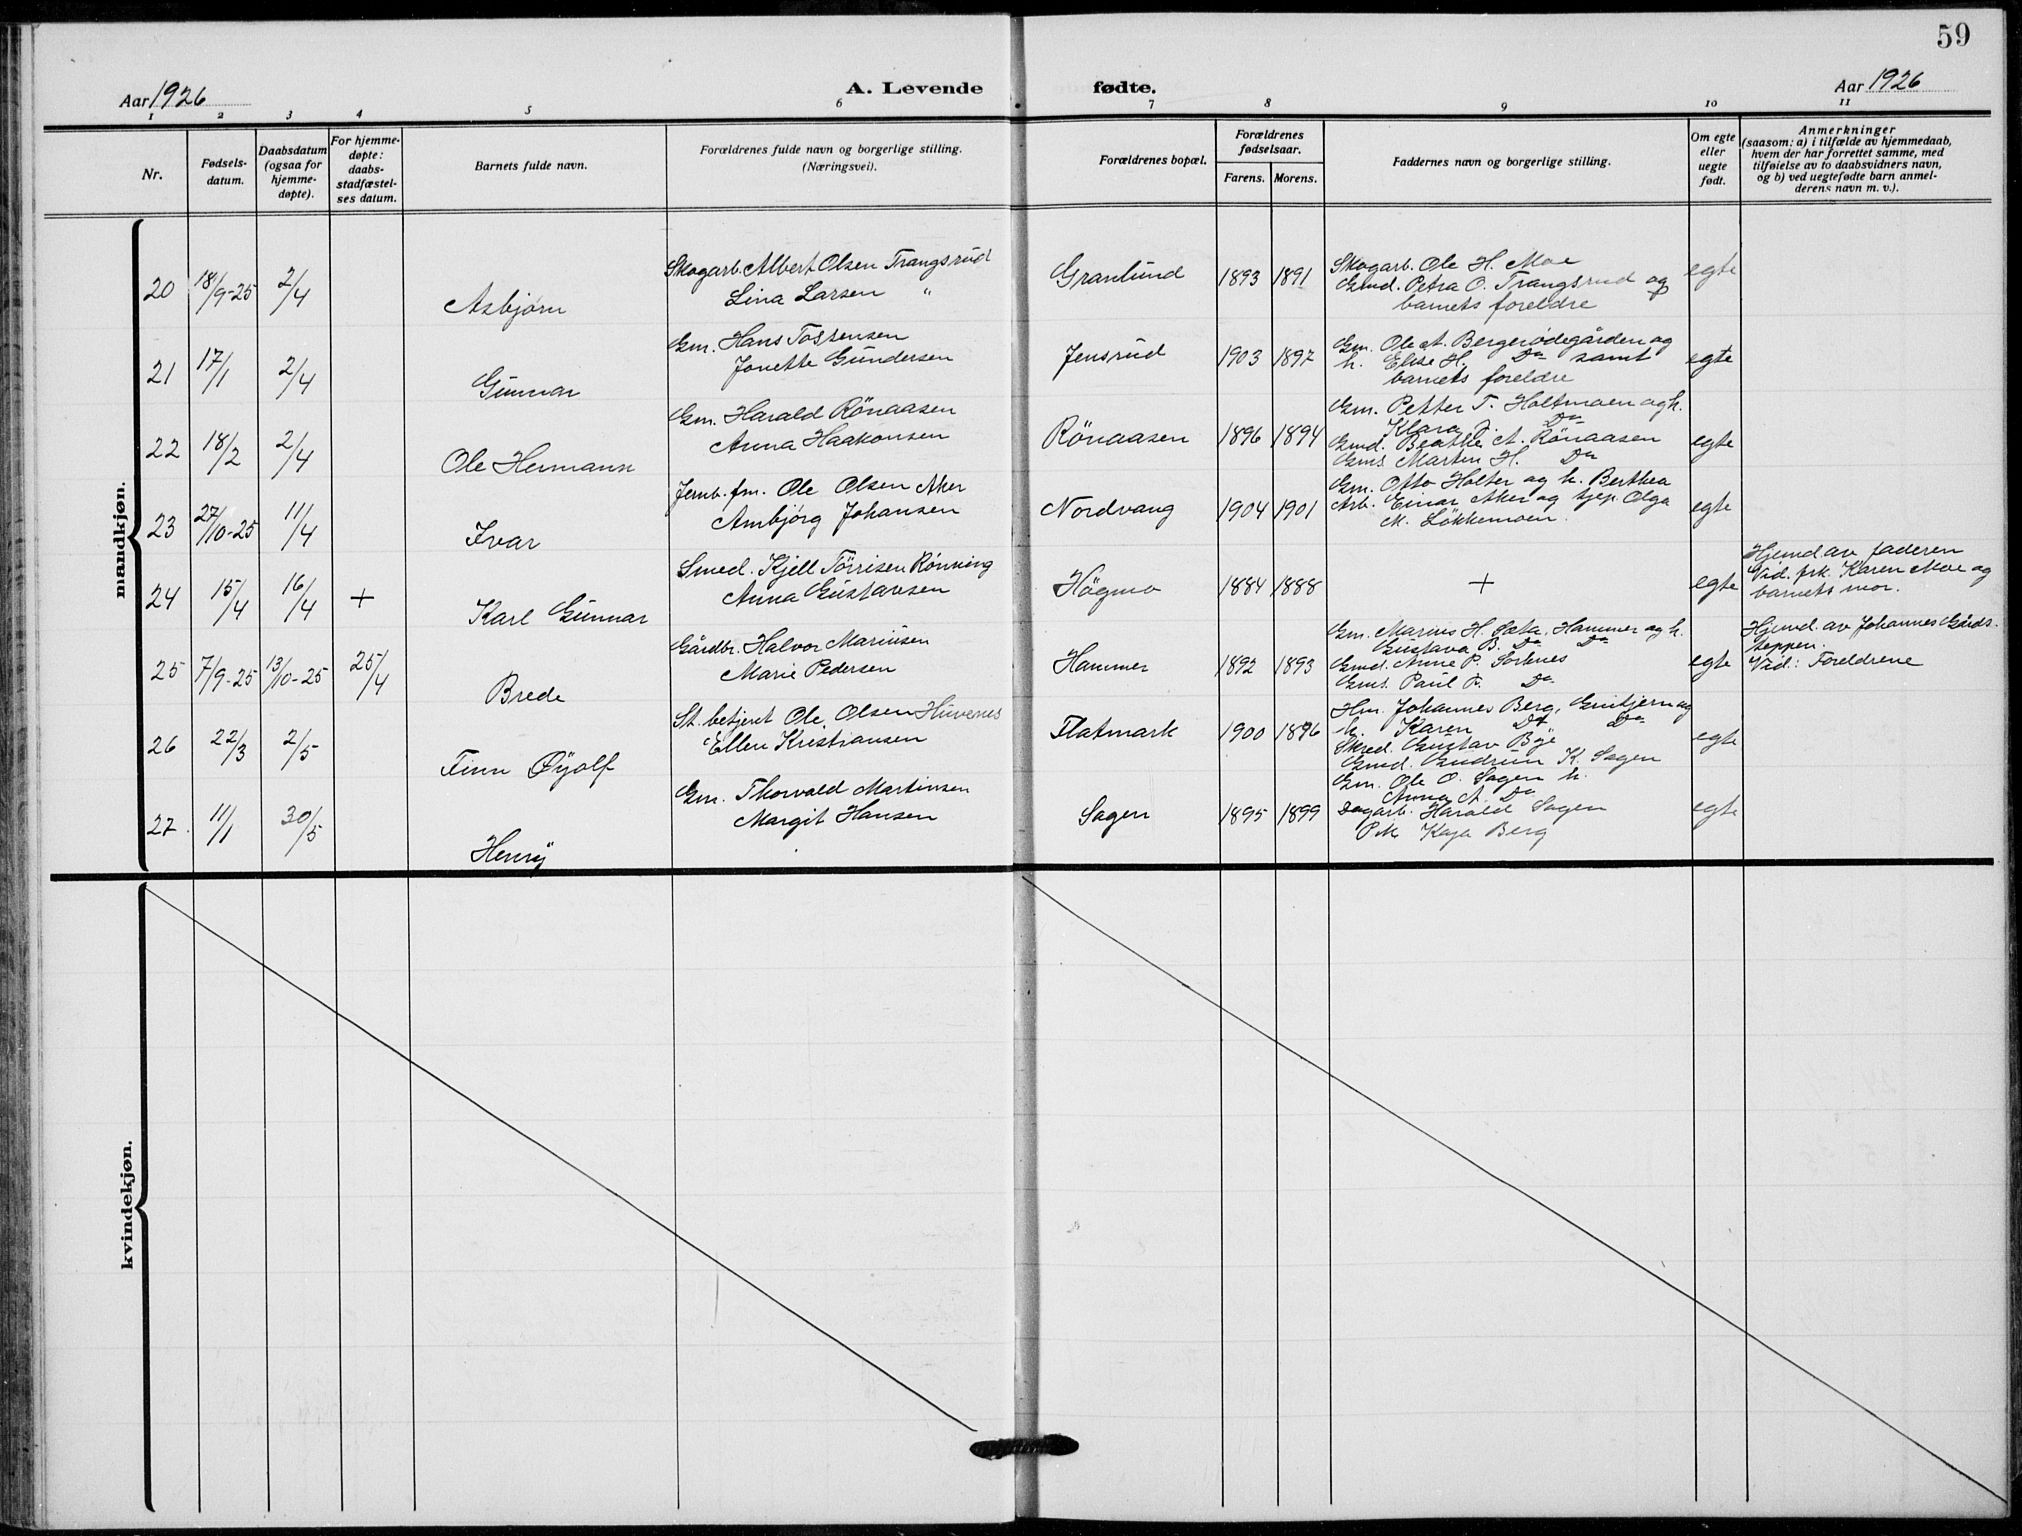 59
Aar 1926
A. Levende fødte.
Aar 1926
1 2 3 4 5 6 7 8 9 10 11
Nr.
Fødsels-
datum.
Daabsdatum
(ogsaa for
hjemme-
døpte).
For hjemme-
døpte:
daabs-
stadfæstel-
ses datum.
Barnets fulde navn.
Forældrenes fulde navn og borgerlige stilling.
(Næringsvei).
Forældrenes bopæl.
Forældrenes
fødselsaar.
Farens. Morens.
Faddernes navn og borgerlige stilling.
Om egte
eller
uegte
født.
Anmerkninger
(saasom: a) i tilfælde av hjemmedaab,
hvem der har forrettet samme, med
tilføielse av to daabsvidners navn,
og b) ved uegtefødte barn anmel-
derens navn m. v.).
mandkjøn.
20 18/9-25 2/4 Asbjørn
Skogarb. Albert Olsen Trangsrud
Lina Larsen "
Granlund 1893 1891
Skogarb. Ole H. Moe
Gmd. Petra O. Trangsrud og
barnets foreldre
egte
21 17/1 2/4 Gunnar
Gm. Hans Tostensen
Jonette Gundersen
Jensrud 1903 1897
Gm. Ole A. Bergerödegården og
h. Elise H. Do samt
barnets foreldre
egte
22 18/2 2/4 Ole Hermann
Gm. Harald Rönaasen
Anna Haakonsen
Rönaasen 1896 1894
Gm. Petter T. Holtmoen og h.
Klara J. Do
Gmd. Beathe A. Rönaasen
Gms. Martin H. Do
egte
23 27/10-25 11/4 Ivar
Jernb. fm. Ole Olsen Aker
Ambjörg Johansen
Nordvang 1904 1901
Gm. Otto Holter og h. Berthea
Arb. Einar Aker og tjep. Olga
M. Lökkemoen.
egte
24 15/4 16/4 + Karl Gunnar
Smed. Kjell Törrisen Rönning
Anna Gustavsen
Högmo 1884 1888
+
egte
Hjemd. av faderen
Vid. frk. Karen Moe og
barnets mor.
25 7/9-25 13/10-25 25/4 Brede
Gårdbr. Halvor Mariusen
Marie Pedersen
Hammer 1892 1893
Gm. Marius H. Sæta, Hammer og h.
Gustava B. Do Do
Gmd. Anne P. Sorknes
Gms. Paul P. Do
egte
Hjemd. av Johannes Gårds-
teppen.
Vid: Foreldrene
26 22/3 2/5 Finn Øyolf
St. betjent Ole Olsen Huvenes
Ellen Kristiansen
Flatmark 1900 1896
Hm. Johannes Berg, og
h. Karen Do Do
Skred. Gustav Bye
Gmd. Gudrun K. Sagen
egte
27. 11/1 30/5 Henry
Gm. Thorvald Martinsen
Margit Hansen
Sagen 1895 1899
Gm. Ole O. Sagen h.
Anna A. Do
Dagarb. Harald Sagen
Pik Kaja Berg
egte
kvindekjøn.